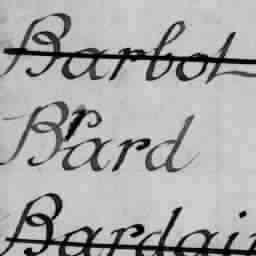 Barbot
Bard
Bardai